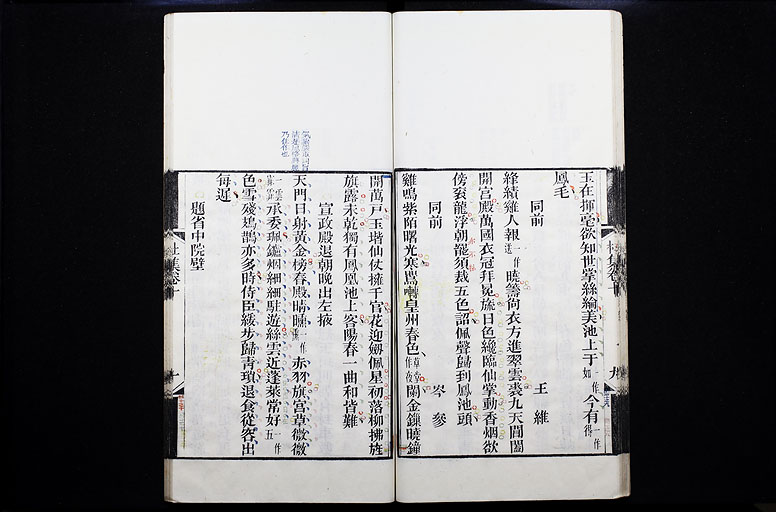 玉在揮毫欲知世掌絲綸美池上于一作如今有一作得
鳳毛
同前 王維
絳幘雞人報一作送曉籌尚衣方進翠雲裘九天閶闔
開宮殿萬國衣冠拜冕旒日色纔臨仙掌動香烟欲
傍袞龍浮朝罷須裁五色詔佩聲歸到鳳池頭
同前 岑參
雞鳴紫陌曙光寒鶯囀皇州春色草堂作夜闌金鎖曉鐘
開萬戶玉堦仙仗擁千官花迎劒佩星初落柳拂旌
旗露未乾獨有鳳凰池上客陽春一曲和皆難
宣政殿退朝晚出左掖
天門日射黃金榜春殿晴曛一作赤羽旗宮草微微
一云承委珮鑪烟細細駐遊絲雲近蓬萊常好一作五
色雪殘鳷鵲亦多時侍臣緩步歸青瑣退食從容出
每遲
題省中院壁
杜集卷十
十
杜集卷十
九